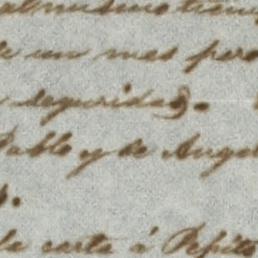 al mismo tiem
de un mes per
seguridad.
Pablo y de Angel
la carta á Pepito